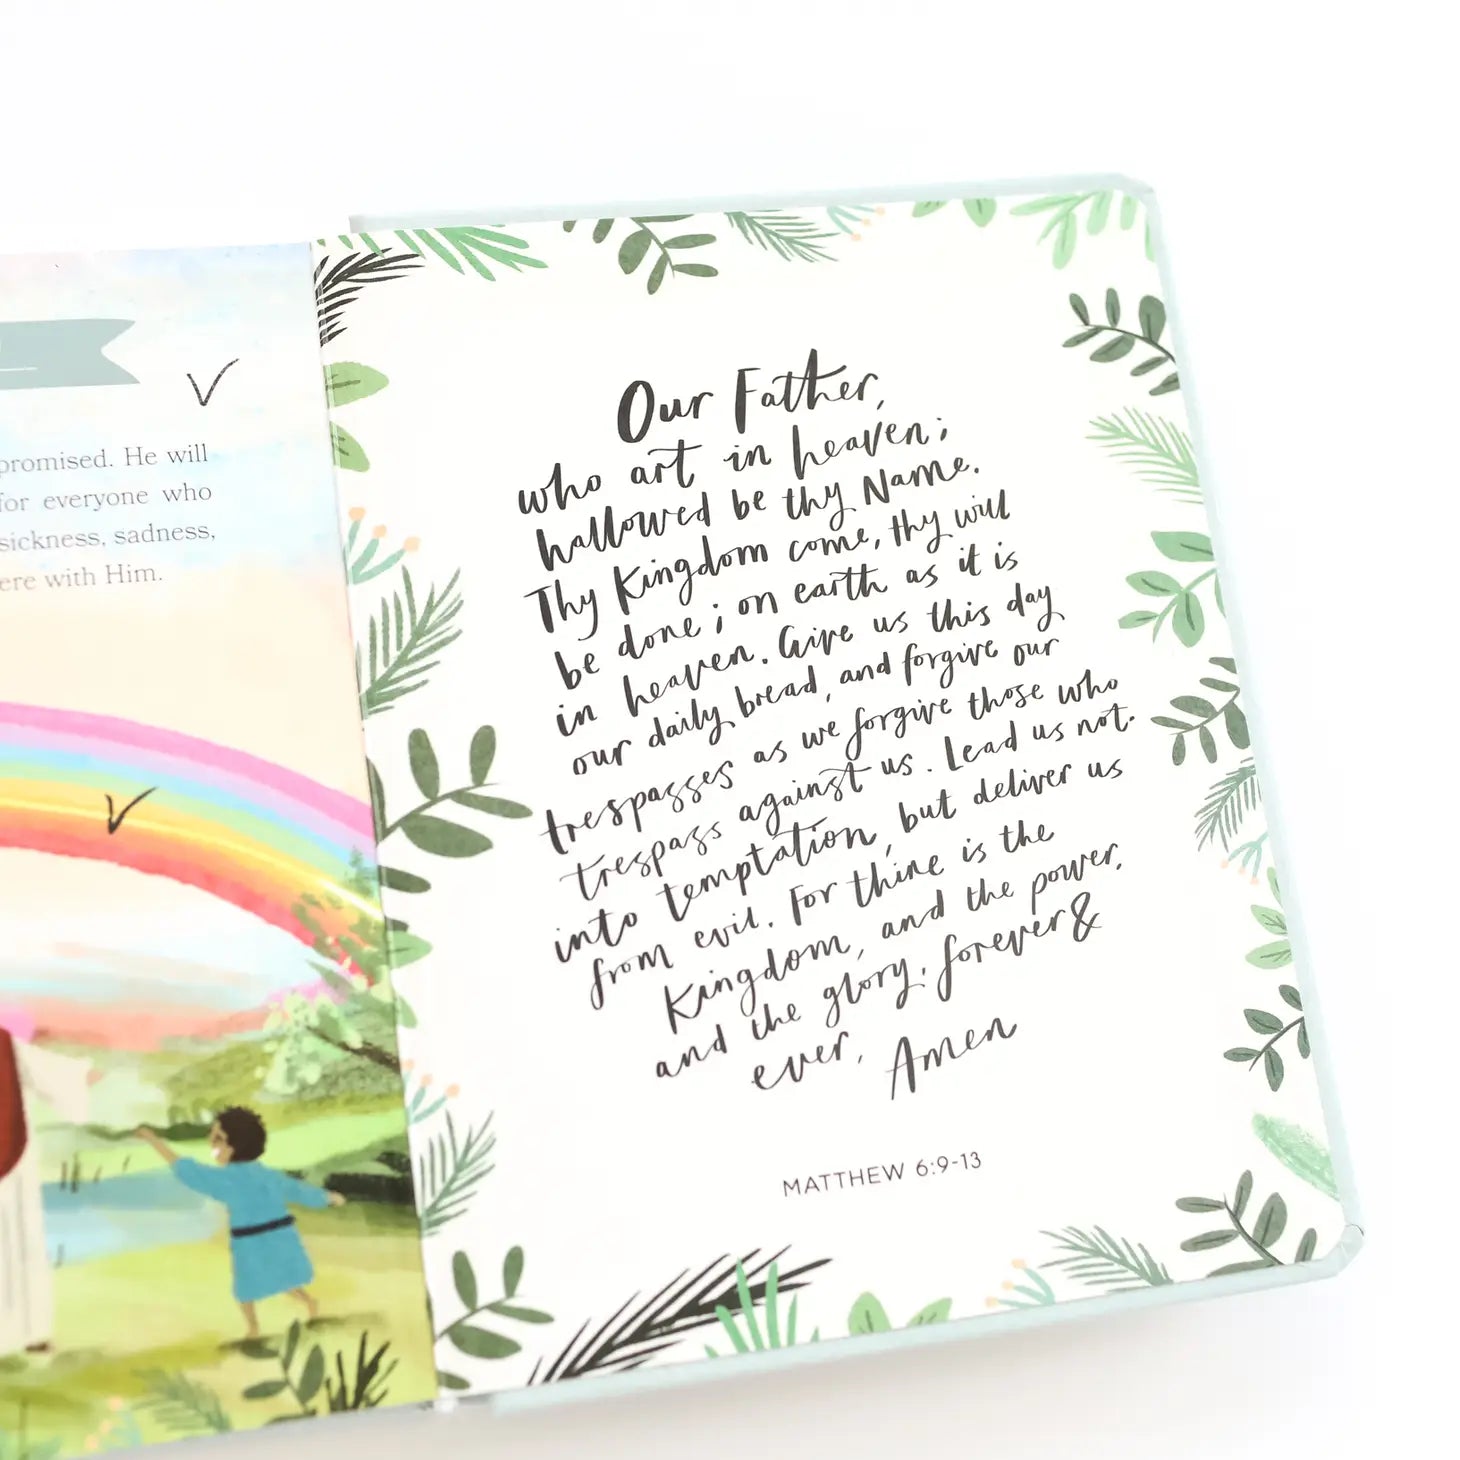 promised. He will
for everyone who
sickness, sadness,
ere with Him.
Our Father,
who art in heaven;
hallowed be thy Name.
Thy Kingdom come, thy will
be done; on earth as it is
in heaven. Give us this day
our daily bread, and forgive our
trespasses as we forgive those who
trespass against us. Lead us not.
into temptation, but deliver us
from evil. For thine is the
Kingdom, and the power,
and the glory. forever &
ever. Amen
MATTHEW 6:9-13